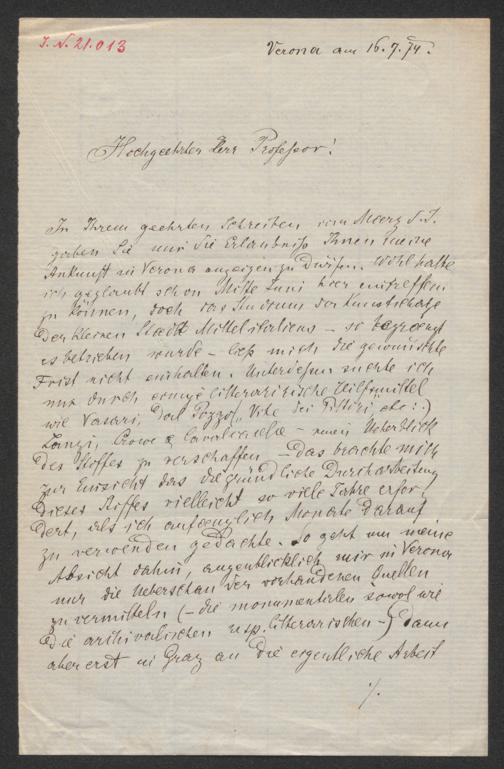 J. N. 21.013
Verona am 16.7.74.
Hochgeehrter Herr Professor!
In Ihrem geehrten Schreiben vom Maerz d. J.
gaben Sie mir die Erlaubniss Ihnen meine
Ankunft in Verona anzeigen zu dürfen. Wohl hatte
ich geglaubt schon Mitte Juni hier eintreffen
zu können, doch das Studium der Kunstschätze
der kleinen Stadt Mittelitaliens – so begrenzt
es betrieben wurde – liess mich die gewünschte
Frist nicht einhalten. Unterdessen suchte ich
mir durch einige litterarische Hilfsmittel
wie Vasari, Dal Pozzo („Vite dei Pittori" etc:)
Lanzi, Crowe & Cavalcaselle – einen Ueberblick
des Stoffes zu verschaffen – das brachte mich
zur Einsicht dass die gründliche Durcharbeitung
dieses Stoffes vielleicht so viele Jahre erfor-
dert, als ich anfaenglich Monate darauf
zu verwenden gedachte. So geht nun meine
Absicht dahin, augenblicklich mir in Verona
nur die Ueberschau der vorhandenen Quellen
zu vermitteln (– die monumentalen sowol wie
die archivalischen resp. litterarischen –) dann
aber erst in Graz an die eigentliche Arbeit
./.